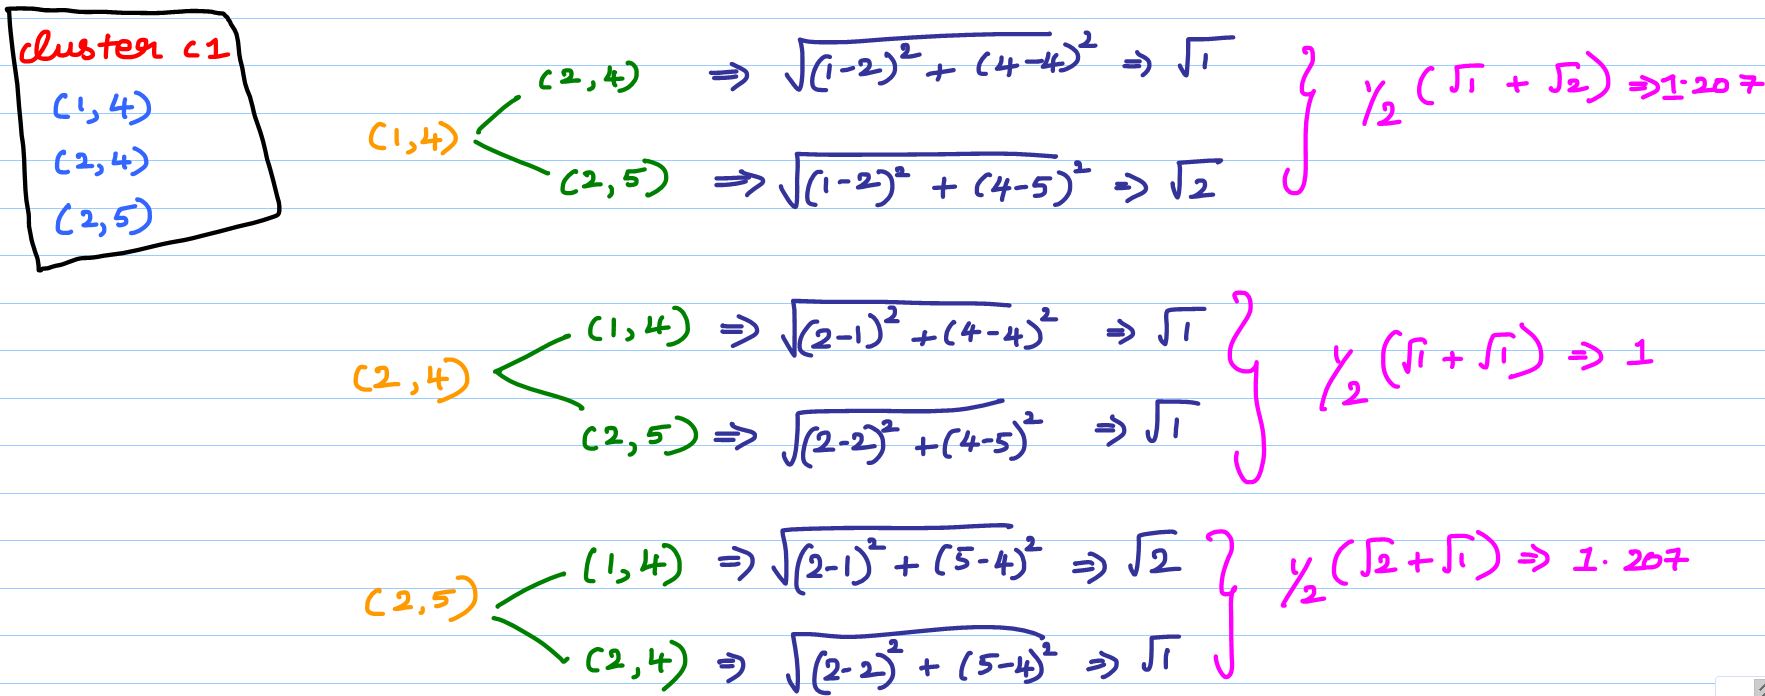 cluster c1
(1,4)
(2,4)
(2,5)
(1,4)
(2,4) ⇒ √(1-2)² + (4-4)² ⇒ √1
(2,5) ⇒ √(1-2)² + (4-5)² ⇒ √2
1/2 (√1 + √2) ⇒ 1.207
(2,4)
(1,4) ⇒ √(2-1)² + (4-4)² ⇒ √1
(2,5) ⇒ √(2-2)² + (4-5)² ⇒ √1
1/2 (√1 + √1) ⇒ 1
(2,5)
(1,4) ⇒ √(2-1)² + (5-4)² ⇒ √2
(2,4) ⇒ √(2-2)² + (5-4)² ⇒ √1
1/2 (√2 + √1) ⇒ 1.207